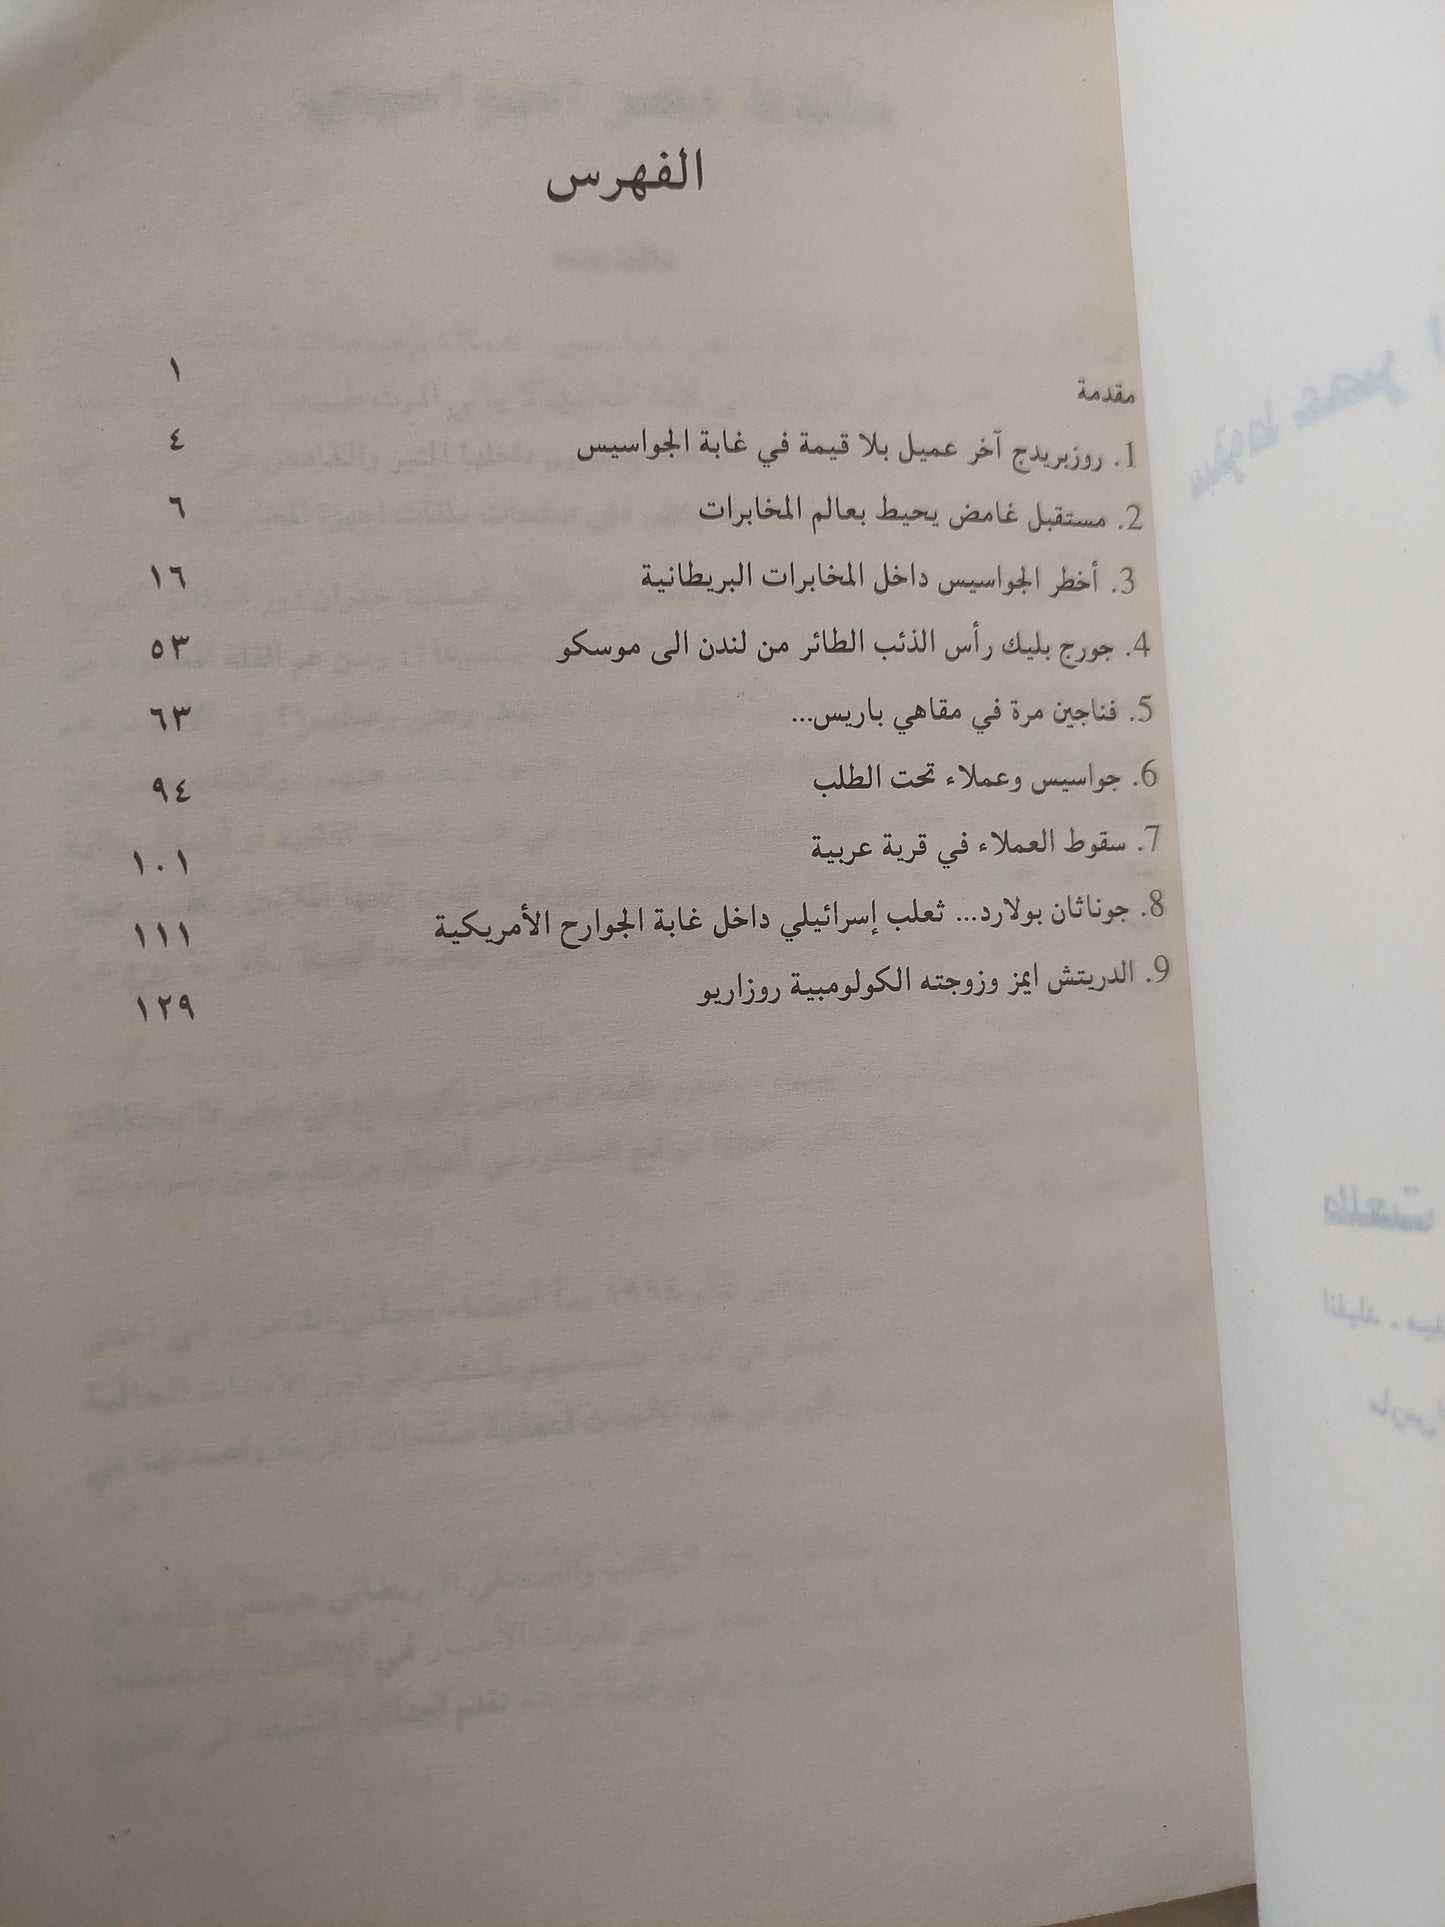 الفهرس
مقدمة ١
1. روزبريدج آخر عميل بلا قيمة في غابة الجواسيس ٤
2. مستقبل غامض يحيط بعالم المخابرات ٦
3. أخطر الجواسيس داخل المخابرات البريطانية ١٦
4. جورج بليك رأس الذئب الطائر من لندن الى موسكو ٥٣
5. فناجين مرة في مقاهي باريس... ٦٣
6. جواسيس وعملاء تحت الطلب ٩٤
7. سقوط العملاء في قرية عربية ١٠١
8. جوناثان بولارد... ثعلب إسرائيلي داخل غابة الجوارح الأمريكية ١١١
9. الدريتش ايمز وزوجته الكولومبية روزاريو ١٢٩